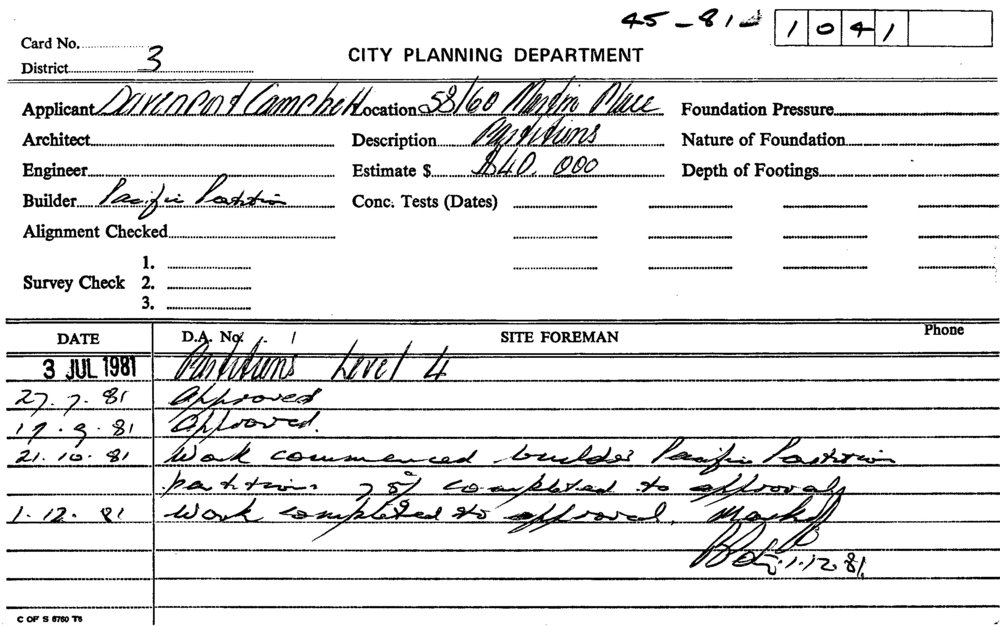 45-81 1041
Card No.
District 3
CITY PLANNING DEPARTMENT
Applicant Davenport Campbell Location 58/60 Martin Place Foundation Pressure
Architect Description Partitions Nature of Foundation
Engineer Estimate $ $40,000 Depth of Footings
Builder Pacific Partition Conc. Tests (Dates)
Alignment Checked
Survey Check 1.
2.
3.
DATE D.A. No. SITE FOREMAN Phone
3 JUL 1981 Partitions Level 4
27.7.81 Approved
17.9.81 Approved.
21.10.81 Work commenced builder Pacific Partition
partitions 75% completed to approval
1.12.81 Work completed to approval.
1.12.81.
C OF S 6760 T6